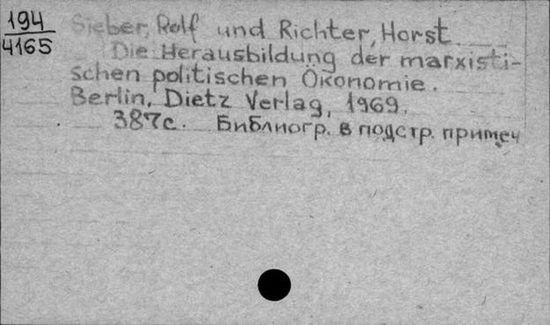 194
4165
Sieber, Rolf und Richter, Horst
Die Herausbildung der marxisti-
schen politischen Ökonomie.
Berlin, Dietz Verlag, 1969.
387с. Библиогр. в подстр. примеч